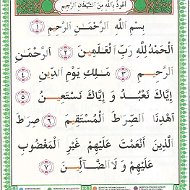 اعوذ بالله من الشيطان الرجيم
بِسْمِ اللَّهِ الرَّحْمَـٰنِ الرَّحِيمِ
الْحَمْدُ لِلَّهِ رَبِّ الْعَـٰلَمِينَ ﴿٢﴾ الرَّحْمَـٰنِ
الرَّحِيمِ ﴿٣﴾ مَـٰلِكِ يَوْمِ الدِّينِ ﴿٤﴾
إِيَّاكَ نَعْبُدُ وَ إِيَّاكَ نَسْتَعِينُ ﴿٥﴾
اهْدِنَا الصِّرَاطَ الْمُسْتَقِيمَ ﴿٦﴾ صِرَاطَ
الَّذِينَ أَنْعَمْتَ عَلَيْهِمْ غَيْرِ الْمَغْضُوبِ
عَلَيْهِمْ وَ لَا الضَّالِّينَ ﴿٧﴾